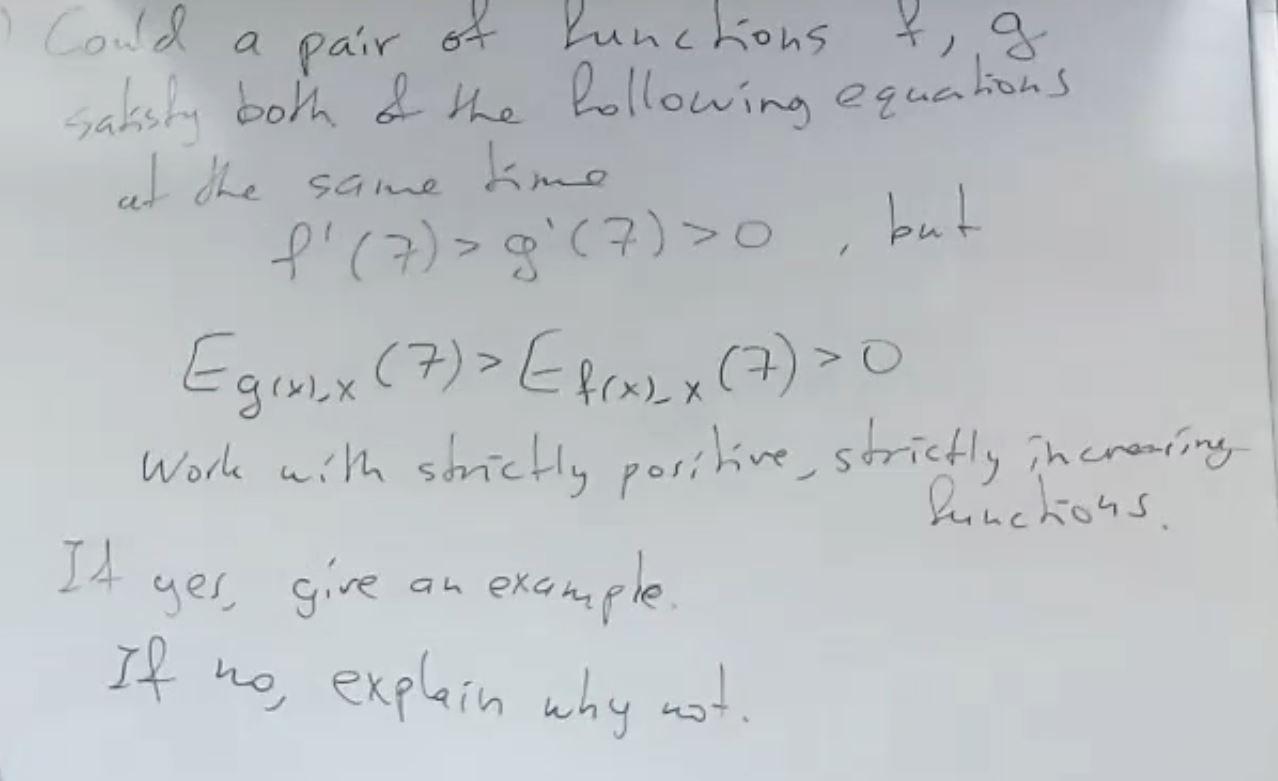 ) Could a pair of functions f, g
satisfy both of the following equations
at the same time
f'(7) > g'(7) > 0 , but
E g(x), x (7) > E f(x), x (7) > 0
Work with strictly positive, strictly increasing
functions.
If yes, give an example.
If no, explain why not.